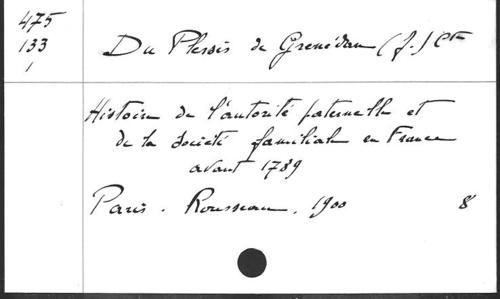 475
133
1
Du Plessis de Grenédan (J.) Cte
Histoire de l'autorité paternelle et
de la Société familiale en France
avant 1789
Paris. Rousseau. 1900 8°